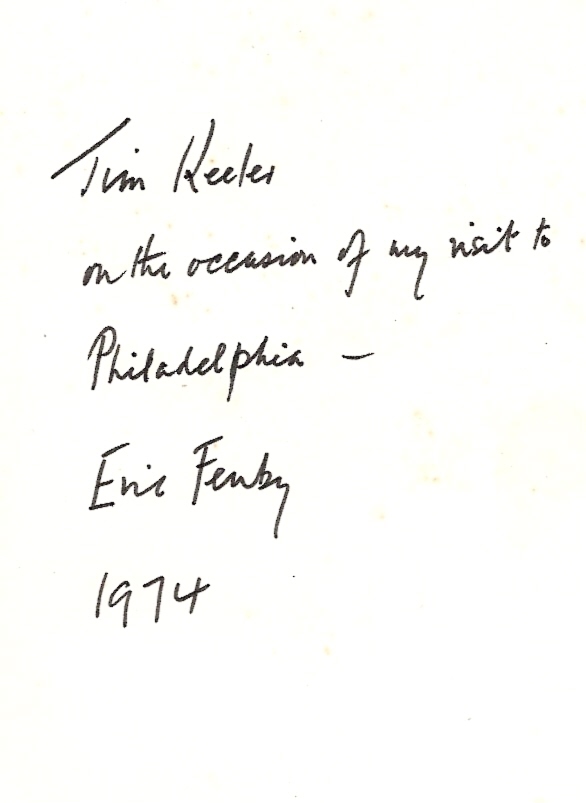 Tim Keeler
on the occasion of my visit to
Philadelphia —
Eric Fenby
1974